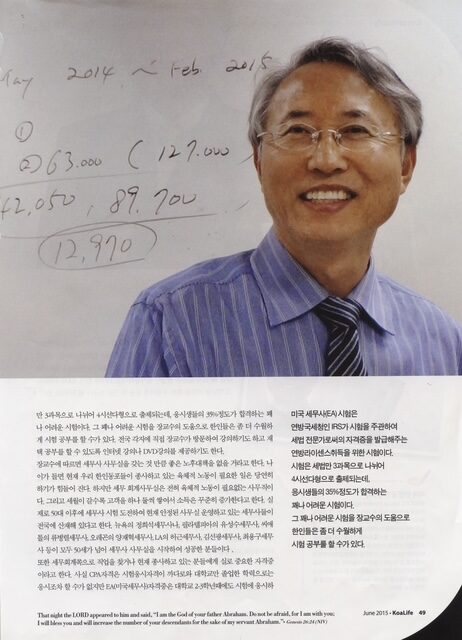 May 2014 ~ Feb. 2015
①
63.000 ( 127.000
42,050, 89.700
12,970
만 3과목으로 나뉘어 4시선다형으로 출제되는데, 응시생들의 35%정도가 합격하는 꽤
나 어려운 시험이다. 그 꽤나 어려운 시험을 장교수의 도움으로 한인들은 좀 더 수월하
게 시험 공부를 할 수가 있다. 전국 각지에 직접 장교수가 방문하여 강의하기도 하고 재
택 공부를 할 수 있도록 인터넷 강의나 DVD강의를 제공하기도 한다.
장교수에 따르면 세무사 사무실을 갖는 것 만큼 좋은 노후대책을 없을 거라고 한다. 나
이가 들면 현재 우리 한인동포들이 종사하고 있는 육체적 노동이 필요한 일은 당연히
하기가 힘들어 진다. 하지만 세무 회계사무실은 전혀 육체적 노동이 필요없는 사무직이
다. 그리고 세월이 갈수록 고객을 하나 둘씩 쌓아서 소득은 꾸준히 증가한다고 한다. 실
제로 50대 이후에 세무사 시험 도전하여 현재 안정된 사무실 운영하고 있는 세무사들이
전국에 산재해 있다고 한다. 뉴욕의 정희석세무사나, 필라델피아의 유성수세무사, 씨애
틀의 류병렬세무사, 오레곤의 양재혁세무사, LA의 허근세무사, 김신광세무사, 최용구세무
사 등이 모두 50세가 넘어 세무사 사무실을 시작하여 성공한 분들이다 .
또한 세무회계쪽으로 직업을 찾거나 현재 종사하고 있는 분들에게 실로 중요한 자격증
이라고 한다. 사실 CPA자격은 시험응시자격이 까다로와 대학교만 졸업한 학력으로는
응시조차 할 수가 없지만 EA(미국세무사)자격증은 대학교 2-3학년때에도 시험에 응시하
미국 세무사(EA) 시험은
연방국세청인 IRS가 시험을 주관하여
세법 전문가로써의 자격증을 발급해주는
연방라이센스취득을 위한 시험이다.
시험은 세법만 3과목으로 나뉘어
4시선다형으로 출제되는데,
응시생들의 35%정도가 합격하는
꽤나 어려운 시험이다.
그 꽤나 어려운 시험을 장교수의 도움으로
한인들은 좀 더 수월하게
시험 공부를 할 수가 있다.
That night the LORD appeared to him and said, "I am the God of your father Abraham. Do not be afraid, for I am with you;
I will bless you and will increase the number of your descendants for the sake of my servant Abraham." - Genesis 26:24 (NIV)
June 2015 • KoaLife 49